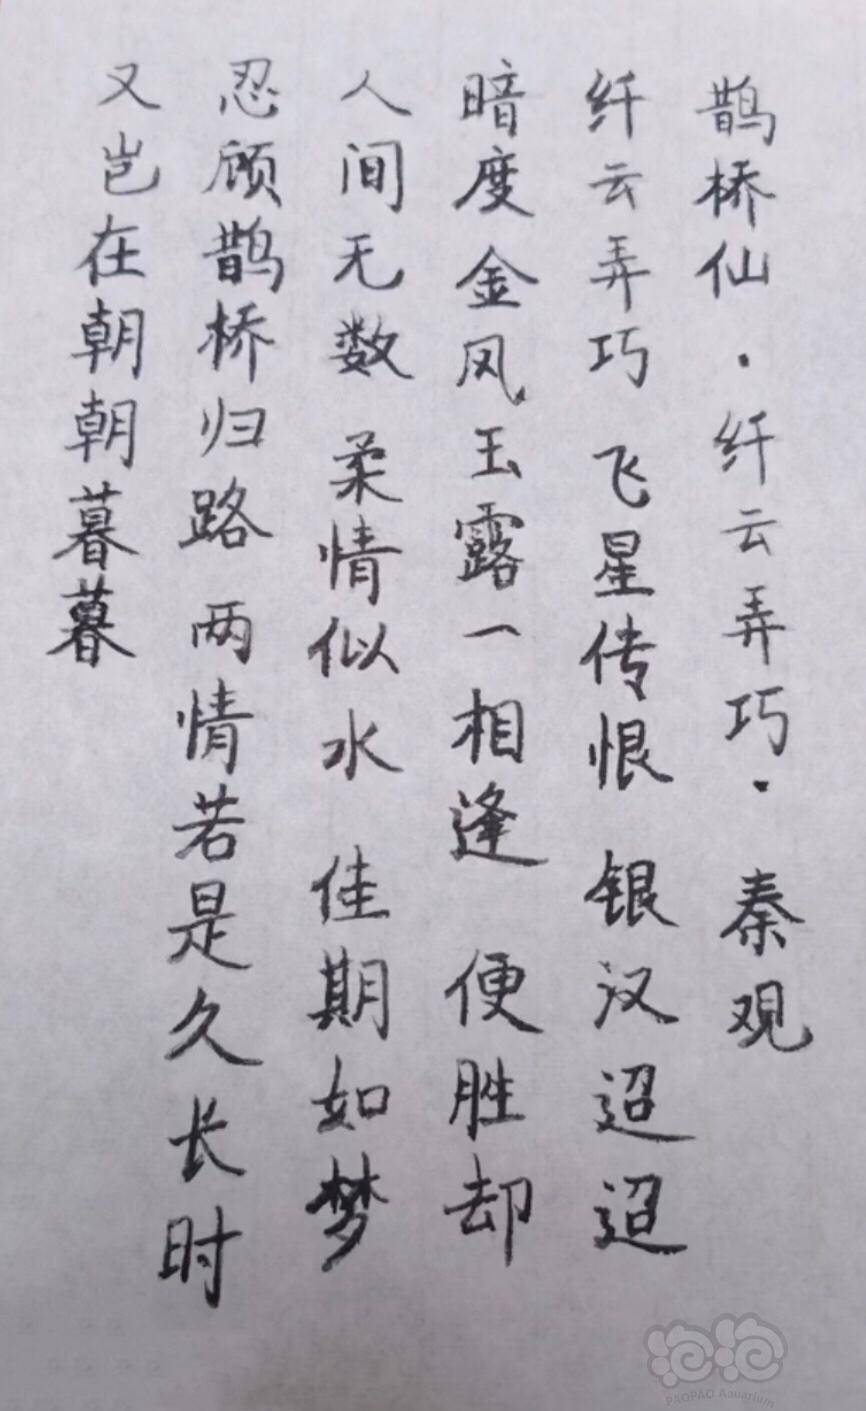 鹊桥仙·纤云弄巧·秦观
纤云弄巧 飞星传恨 银汉迢迢
暗度金风玉露一相逢 便胜却
人间无数 柔情似水 佳期如梦
忍顾鹊桥归路 两情若是久长时
又岂在朝朝暮暮
PAOPAO Aauarium